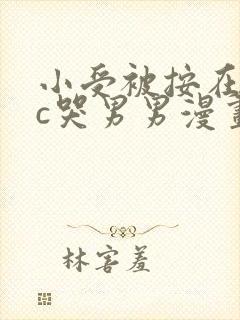 小受被按在
c哭男男漫畫
林害羞